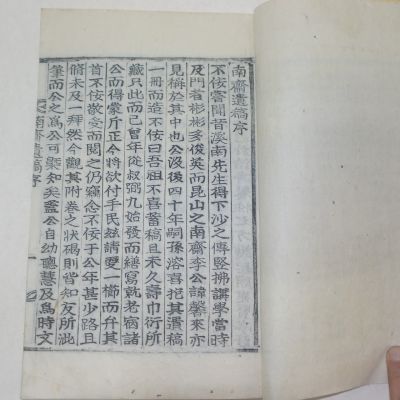 南齋遺稿序
不佞嘗聞晉溪南先生得下沙之傳豎拂講學當時
及門者彬彬多俊英而昆山之南齋李公諱馨來亦
見稱於其中也公沒後四十年嗣孫溶喜抱其遺稿
一冊而造不佞曰吾祖不喜蓄稿且未久壽巾衍所
藏只此而已曩年從叔弼九始發而繕寫就老宿諸
公而得蒙斤正今將欲付手民玆請更一櫛而弁其
首不佞敬受而閱之仍窃念不佞于公年甚少路且
脩未及一拜然今觀其附卷之狀碣則皆知友所泚
筆而公之爲公可槩知矣盖公自幼聰慧及爲時文
南齋遺稿序
一